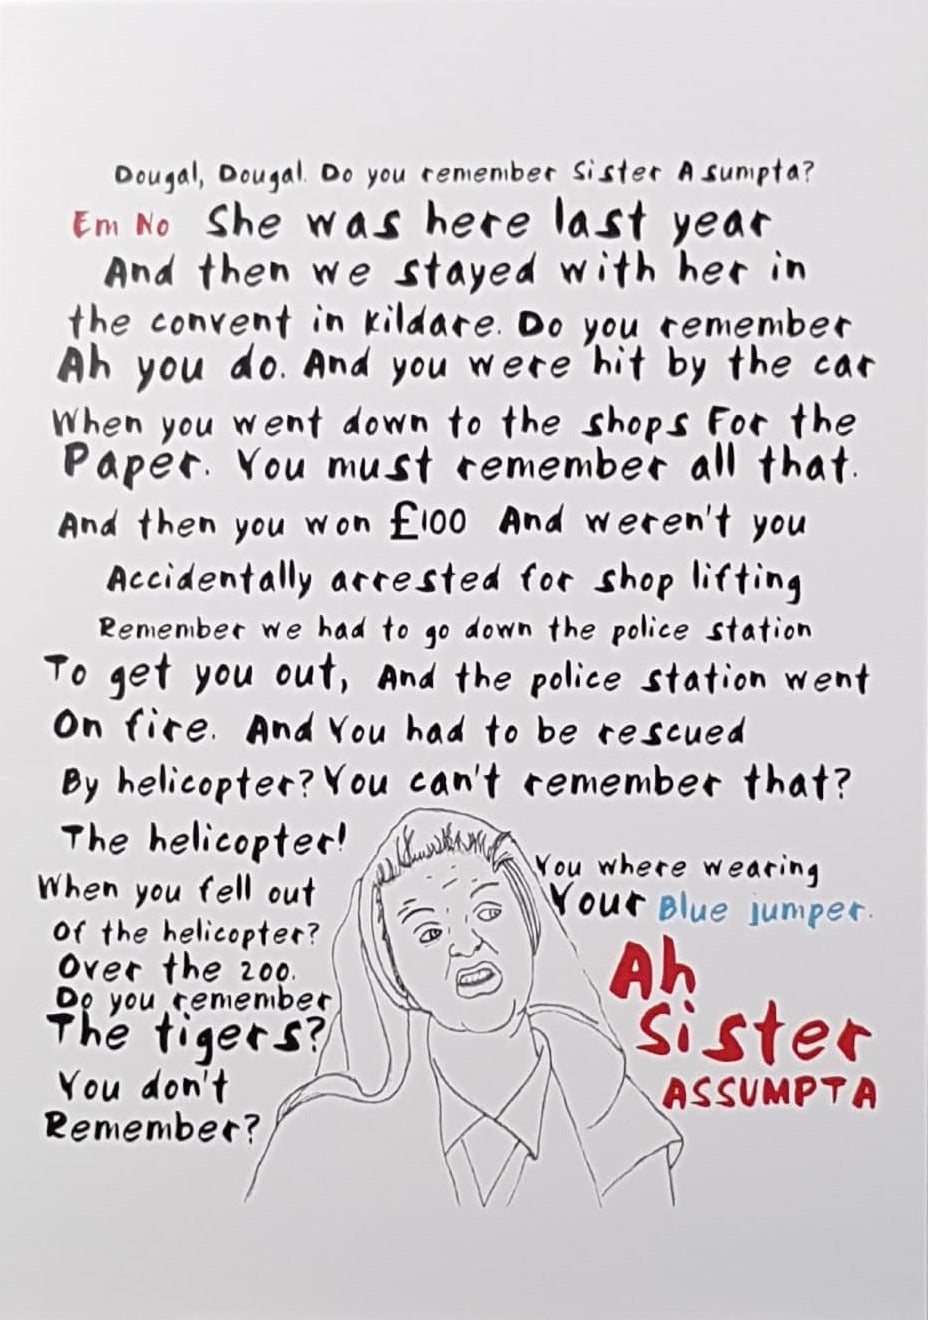 Dougal, Dougal. Do you remember Sister Asumpta?
Em No She was here last year
And then we stayed with her in
the convent in Kildare. Do you remember
Ah you do. And you were hit by the car
When you went down to the shops For the
Paper. You must remember all that.
And then you won £100 And weren't you
Accidentally arrested for shop lifting
Remember we had to go down the police station
To get you out, And the police station went
On fire. And You had to be rescued
By helicopter? You can't remember that?
The helicopter!
When you fell out
Of the helicopter?
Over the zoo.
Do you remember
The tigers?
You don't
Remember?
You where wearing
Your Blue jumper.
Ah
Sister
ASSUMPTA